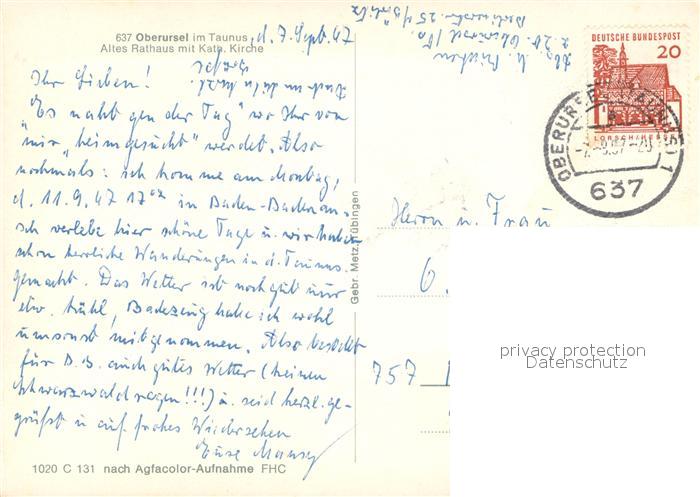 637 Oberursel im Taunus
Altes Rathaus mit Kath. Kirche
d. 7. Sept. 67
Ihr Lieben!
"Es naht gen der Tag" wo Ihr von
mir "heimgesucht" werdet. Also
nochmals: ich komme am Montag,
d. 11.9.67 17 in Baden-Baden an.
Ich verlebe hier schöne Tage u. wir haben
schon herrliche Wanderungen in d. Taunus
gemacht. Das Wetter ist noch gut nur
etw. kühl, Badezeug habe ich wohl
umsonst mitgenommen. Also bestellt
für B.B. auch gutes Wetter (keinen
Schwarzwaldregen!!!) u. seid herzl. ge-
grüßt u. auf frohes Wiedersehen
Eure
1020 C 131 nach Agfacolor-Aufnahme FHC
Gebr. Metz, Tübingen
DEUTSCHE BUNDESPOST
20
LORSCH/HESSEN
OBERURSEL (TAUNUS) 1
637
Herrn u. Frau
6.
757
privacy protection
Datenschutz